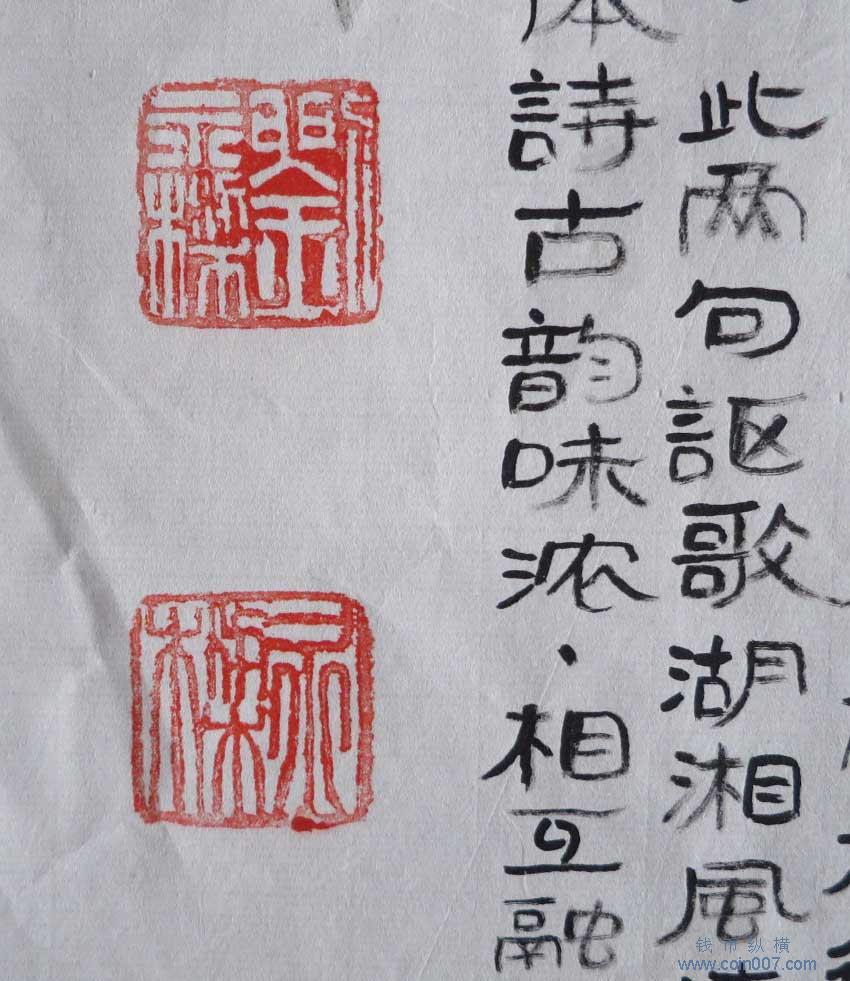 此两句謳歌湖湘風
体詩古韵味浓、相互融
钱币纵横
www.coin007.com